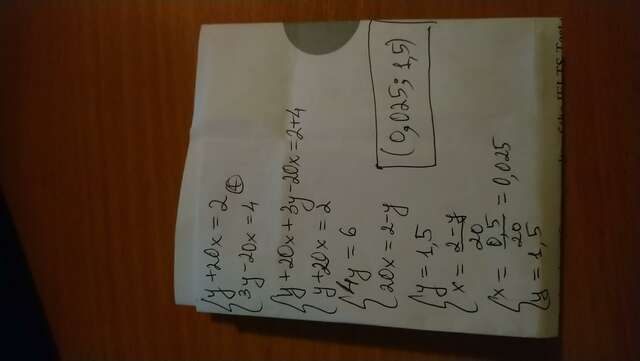 y+20x=2
3y-20x=4 ⊕
y+20x+3y-20x=2+4
y+20x=2
4y=6
20x=2-y
y=1,5
x=\frac{2-y}{20}
x=\frac{0,5}{20}=0,025
y=1,5
(0,025; 1,5)